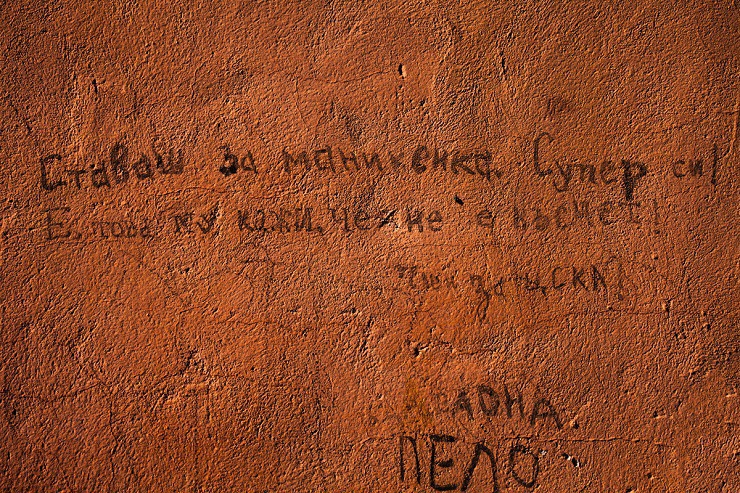 Ставаш за маникенка. Супер си!
Е, това му кажи, че не е късмет!
за ЦСКА!
ПЕЛО